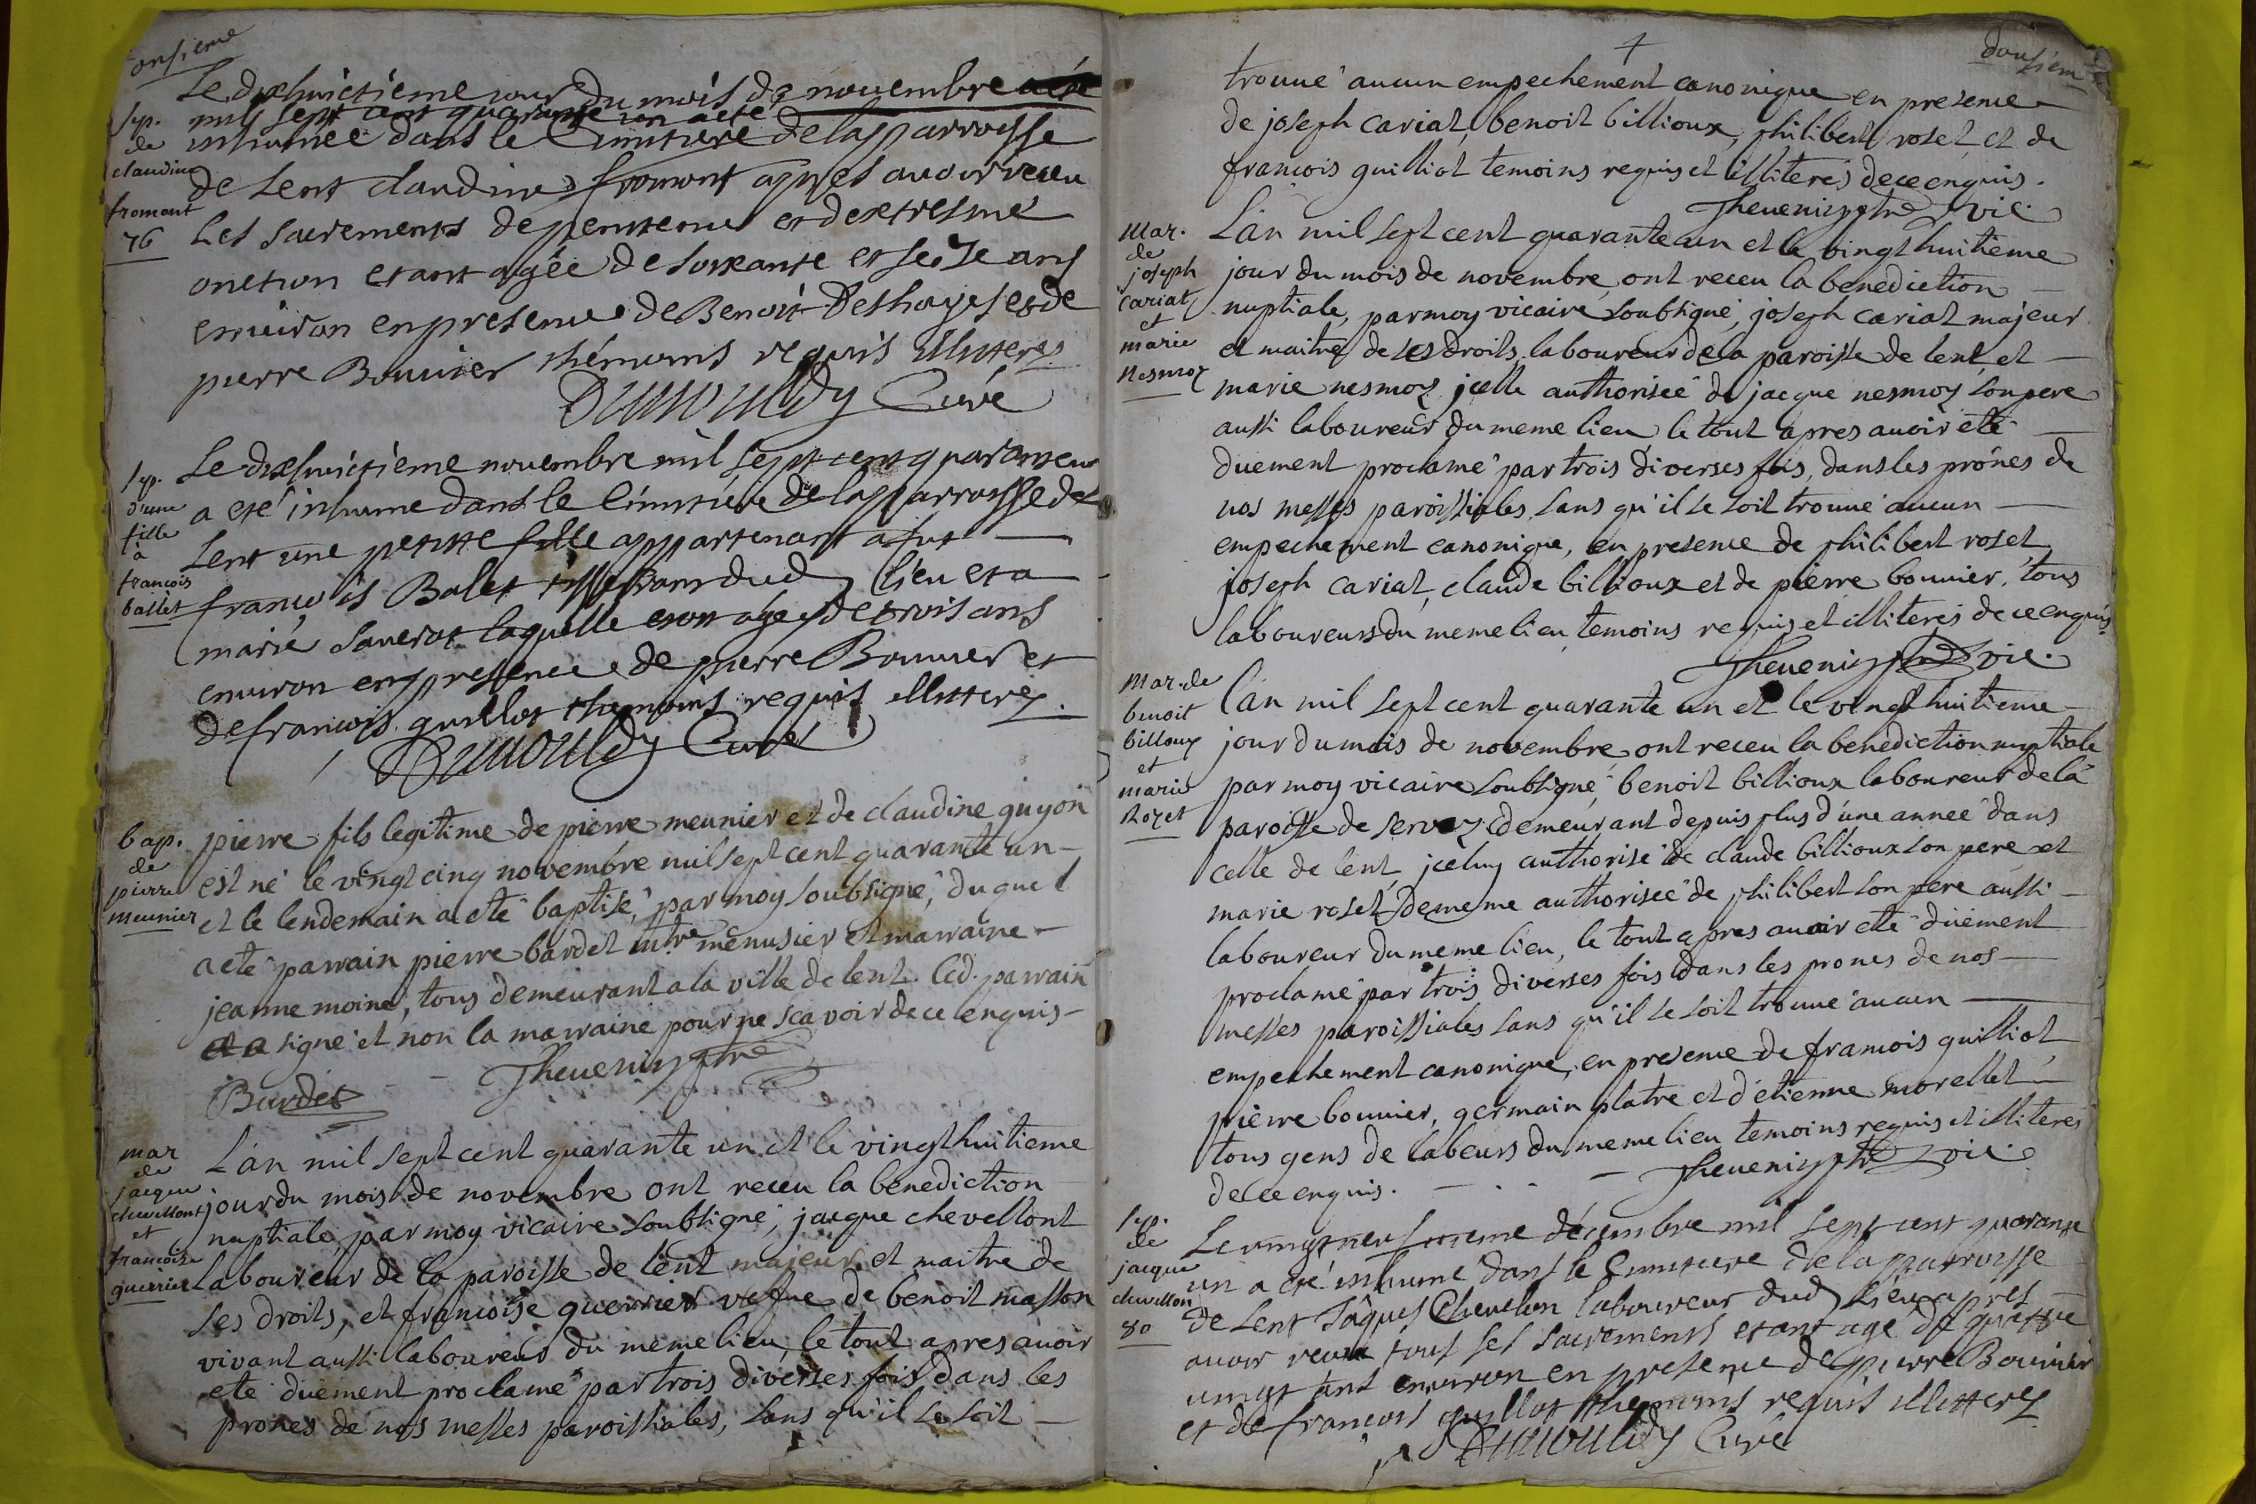 onsieme
Le dixhuictieme jour du mois de novembre
mil sept cent quarante un a eté
inhumée dans le Cimitiere de la parroisse
de Lent claudine fromont apres avoir receu
Les sacrements de penitence et dextresme
onction etant agée de soixante et seize ans
environ en presence de Benoit Deshayes et de
pierre Bouvier thémoins requis illiteres
Curé
sep.
de
claudine
fromont
76
Le dixhuictieme novembre mil sept cent quarante un
a eté inhume dans le cimitiere de la parroisse de
Lent une petitte fille appartenant a fut
françois Balet tisserand dud lieu et a
marie laquelle etoit agee de trois ans
environ en pressence de pierre Bouvier et
de francois guillot themoins requis illitterez.
Curé
sep.
d'une
fille
à
françois
ballet
pierre fils legitime de pierre meunier et de claudine guyon
est né le vingt cinq novembre mil sept cent quarante un
et le lendemain a eté baptisé, par moy soubsigné, du quel
a eté parrain pierre bardet mtre menusier et marraine
jeanne moine, tous demeurant a la ville de lent. Led. parrain
a signé et non la marraine pour ne sçavoir de ce enquis
Thevenin ptre
Burdet
bap.
de
pierre
meunier
L'an mil sept cent quarante un et le vingt huitieme
jour du mois de novembre ont receu la benediction
nuptiale, par moy vicaire soubsigné, jacque chevellont
laboureur de la paroisse de lent majeur et maitre de
ses droits, et francoise guerrier vefve de benoit masson
vivant aussi laboureur du meme lieu, le tout apres avoir
eté duement proclamé par trois diverses fois dans les
prones de nos messes paroissiales, sans qu'il se soit
mar
de
jacque
chevellont
et
francoise
guerrier
dousiem
trouué aucun empechement canonique en presence
de joseph cariat, benoit billioux, philibert roset, et de
francois guilliot temoins requis et illiterés de ce enquis.
Thevenin ptre vic.
L'an mil sept cent quarante un et le vingt huitieme
jour du mois de novembre ont receu la benediction
nuptiale, par moy vicaire soubsigné, joseph cariat majeur
et maitre de ses droits, laboureur de la paroisse de lent, et
marie nesmoz jcelle authorisée de jacque nesmoz son pere
aussi laboureur du meme lieu, le tout apres avoir eté
duement proclamé par trois diverses fois, dans les prônes de
nos messes paroissiales, sans qu'il se soit trouué aucun
empechement canonique, en presence de philibert roset,
joseph cariat, claude billioux et de pierre bouvier, tous
laboureurs du meme lieu temoins requis et illiterés de ce enquis
Thevenin ptre vic.
mar.
de
joseph
cariat
et
marie
Nesmoz
L'an mil sept cent quarante un et le vingt huitieme
jour du mois de novembre ont receu la benediction nuptiale
par moy vicaire soubsigné, benoit billioux laboureur de la
paroisse de servaz demeurant depuis plus d'une année dans
celle de lent, jceluy authorisé de claude billioux son pere et
marie roset de meme authorisée de philibert son pere aussi
laboureur du meme lieu, le tout apres avoir eté duement
proclamé par trois diverses fois dans les prones de nos
messes paroissiales sans qu'il se soit trouué aucun
empechement canonique, en presence de francois guilliot,
pierre bouvier, germain platre et d'etienne morellet
tous gens de labeurs du meme lieu temoins requis et illiterés
de ce enquis.
Thevenin ptre vic.
Mar. de
benoit
billoux
et
marie
Rozet
Le vingt neufvieme décembre mil sept cent quarante
un a eté inhumé dans le Cimitiere de la parroisse
de Lent Jâques Chevelon laboureur dud lieu apres
avoir receu tous ses sacrements etant agé de quattre
vingt ans environ en presence de pierre Bouvier
et de françois guillot themoins requis illitterez
Curé
sep.
de
jacque
chevellon
80